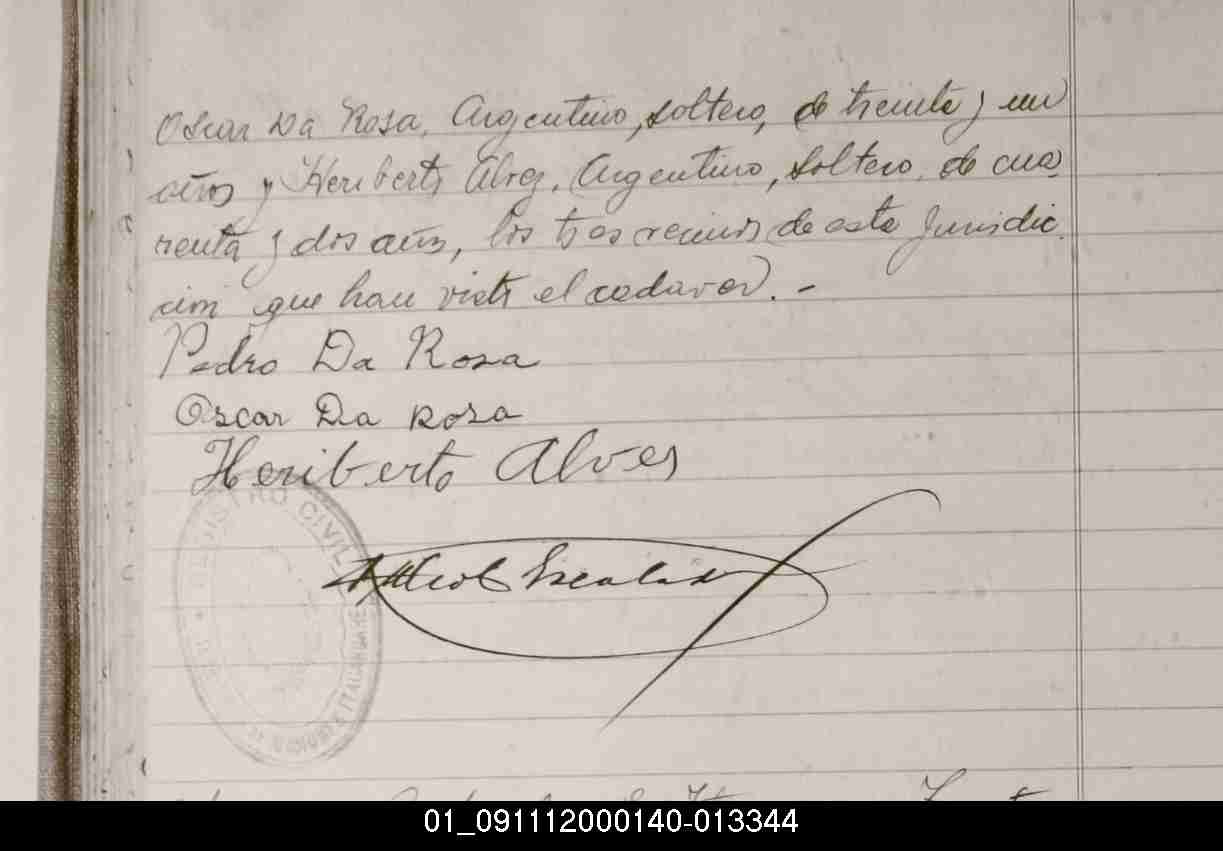 Oscar Da Rosa, Argentino, soltero, de treinta y un
años y Heriberto Alvez, Argentino, soltero, de cua
renta y dos años, los tres vecinos de esta Jurisdic
cion que han visto el cadaver. -
Pedro Da Rosa
Oscar Da Rosa
Heriberto Alves
REGISTRO CIVIL
Escalada
01_091112000140-013344